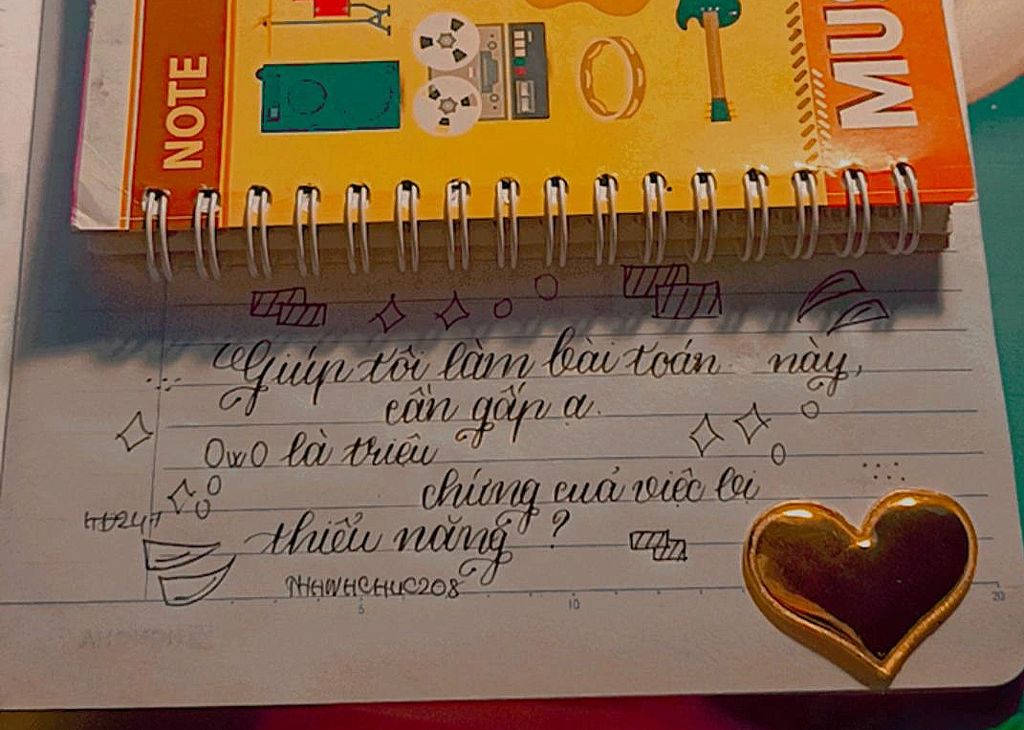 NOTE
MUS
Giúp tôi làm bài toán này,
cần gấp ạ.
OwO là triêu
chứng cuả việc bị
thiểu năng ?
HD247
THANHCHUC208
5 10 20